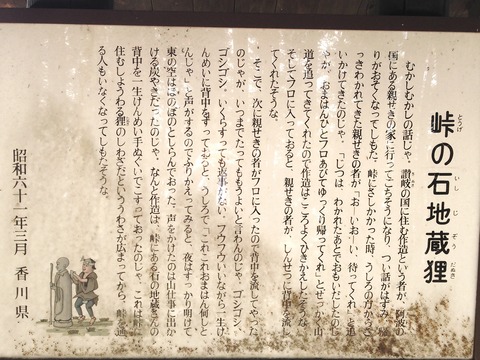 峠の石地蔵狸
とうげ いし じ ぞう だぬき
むかしむかしの話じゃ。讃岐の国に住む作造という者が、阿波の
国にある親せきの家に行ってごちそうになり、つい話がはずみ、帰
りがおそくなってしもた。峠にさしかかった時、うしろの方からさ
っきわかれてきた親せきの者が「おーいおーい、待ってくれ」と追
いかけてきたのじゃ。「じつは、わかれたあとでおもいだしたのじ
ゃが、おまはんひとフロあびてゆっくり帰ってくれ」とせっかく山
道を追ってきてくれたので作造はこころよくひきかえしたそうな。
そしてフロに入っておると、親せきの者が、しんせつに背中を流し
てくれたそうな。
そこで、次に親せきの者がフロに入ったので背中を流してやった
のじゃが、いつまでたってももうよいと言わんのじゃ。ゴシゴシ、
ゴシゴシ、いくらすっても返事がない。フウフウいいながら一生け
んめいに背中をすっておると、うしろで「これこれおまはん何しと
んじゃ」と声がするのでふりかえってみると、夜はすっかり明けて
東の空はほのぼのとしらんでおった。声をかけたのは山仕事に出か
ける炭やきだったのじゃ。なんと作造は、峠にある石の地蔵さんの
背中を一生けんめい手ぬぐいですっておったのじゃ。これは峠に
住むしょうわる狸のしわざだといううわさが広まってから、峠を通
る人もいなくなってしもたそうな。
昭和六十一年三月 香川県